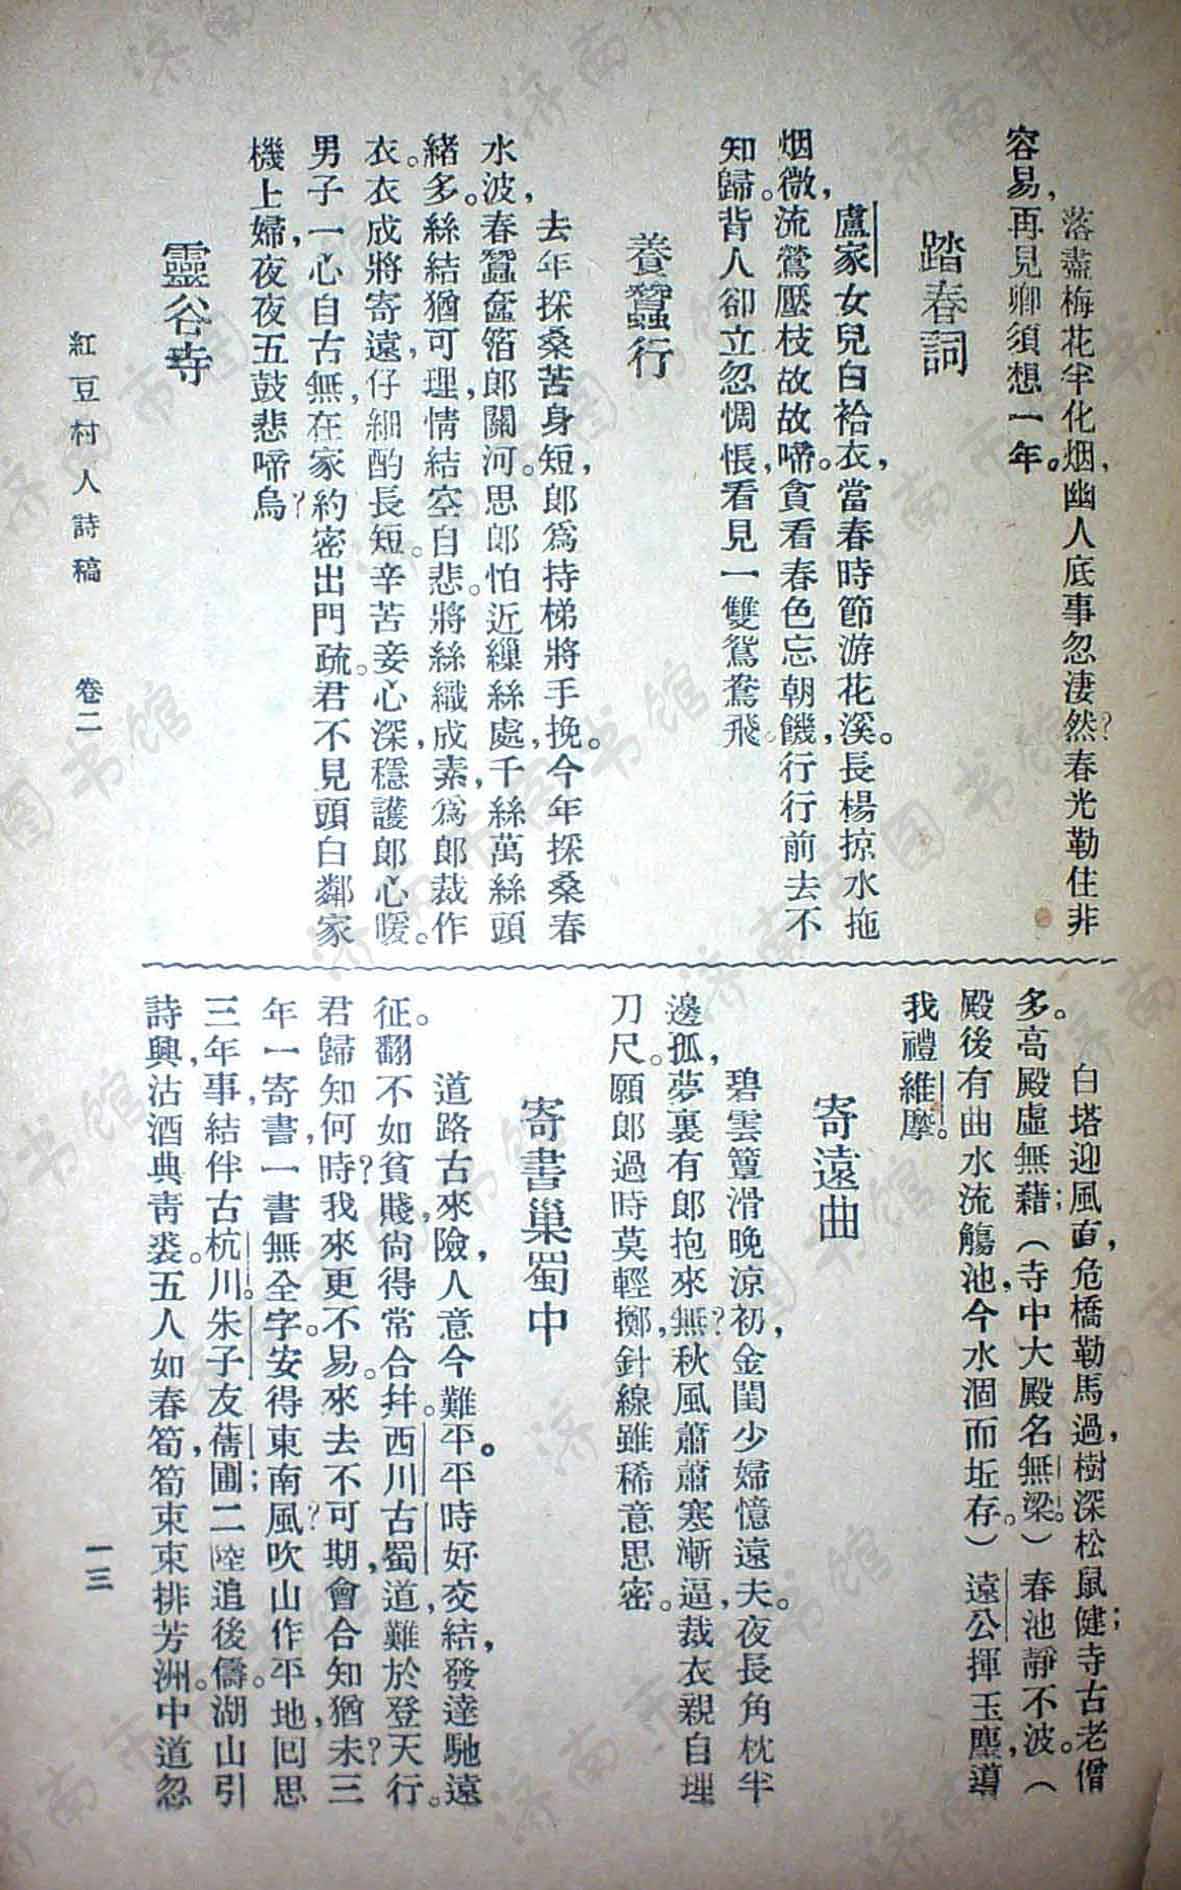 落盡梅花半化烟，幽人底事忽淒然？春光勒住非
容易，再見卿須想一年。
踏春詞
盧家女兒白袷衣，當春時節游花溪。長楊掠水拖
烟微，流鶯壓枝故故啼。貪看春色忘朝饑，行行前去不
知歸。背人卻立忽惆悵，看見一雙鴛鴦飛。
養蠶行
去年採桑苦身短，郎爲持梯將手挽。今年採桑春
水波，春蠶奩箔郎關河。思郎怕近繅絲處，千絲萬絲頭
緒多。絲結猶可理，情結空自悲。將絲織成素，爲郎裁作
衣。衣成將寄遠，仔細酌長短。辛苦妾心深，穩護郎心暖。
男子一心自古無，在家約密出門疏。君不見頭白鄰家
機上婦，夜夜五鼓悲啼烏？
靈谷寺
白塔迎風直，危橋勒馬過，樹深松鼠健；寺古老僧
多。高殿虛無藉；（寺中大殿名無梁。）春池靜不波。（
殿後有曲水流觴池，今水涸而坵存）遠公揮玉麈，導
我禮維摩。
寄遠曲
碧雲簟滑晚涼初，金閨少婦憶遠夫。夜長角枕半
邊孤，夢裏有郎抱來無？秋風蕭蕭寒漸逼，裁衣親自理
刀尺。願郎過時莫輕擲，針線雖稀意思密。
寄書巢蜀中
道路古來險，人意今難平。平時好交結，發達馳遠
征。翻不如貧賤，尙得常合幷。西川古蜀道，難於登天行。
君歸知何時？我來更不易。來去不可期，會合知猶未？三
年一寄書，一書無全字。安得東南風，吹山作平地？回思
三年事，結伴古杭川。朱子友蒨圃；二陸追後儔。湖山引
詩興，沽酒典靑裘。五人如春筍，筍束束排芳洲。中道忽
紅豆村人詩稿
卷二
一三
济南市图书馆